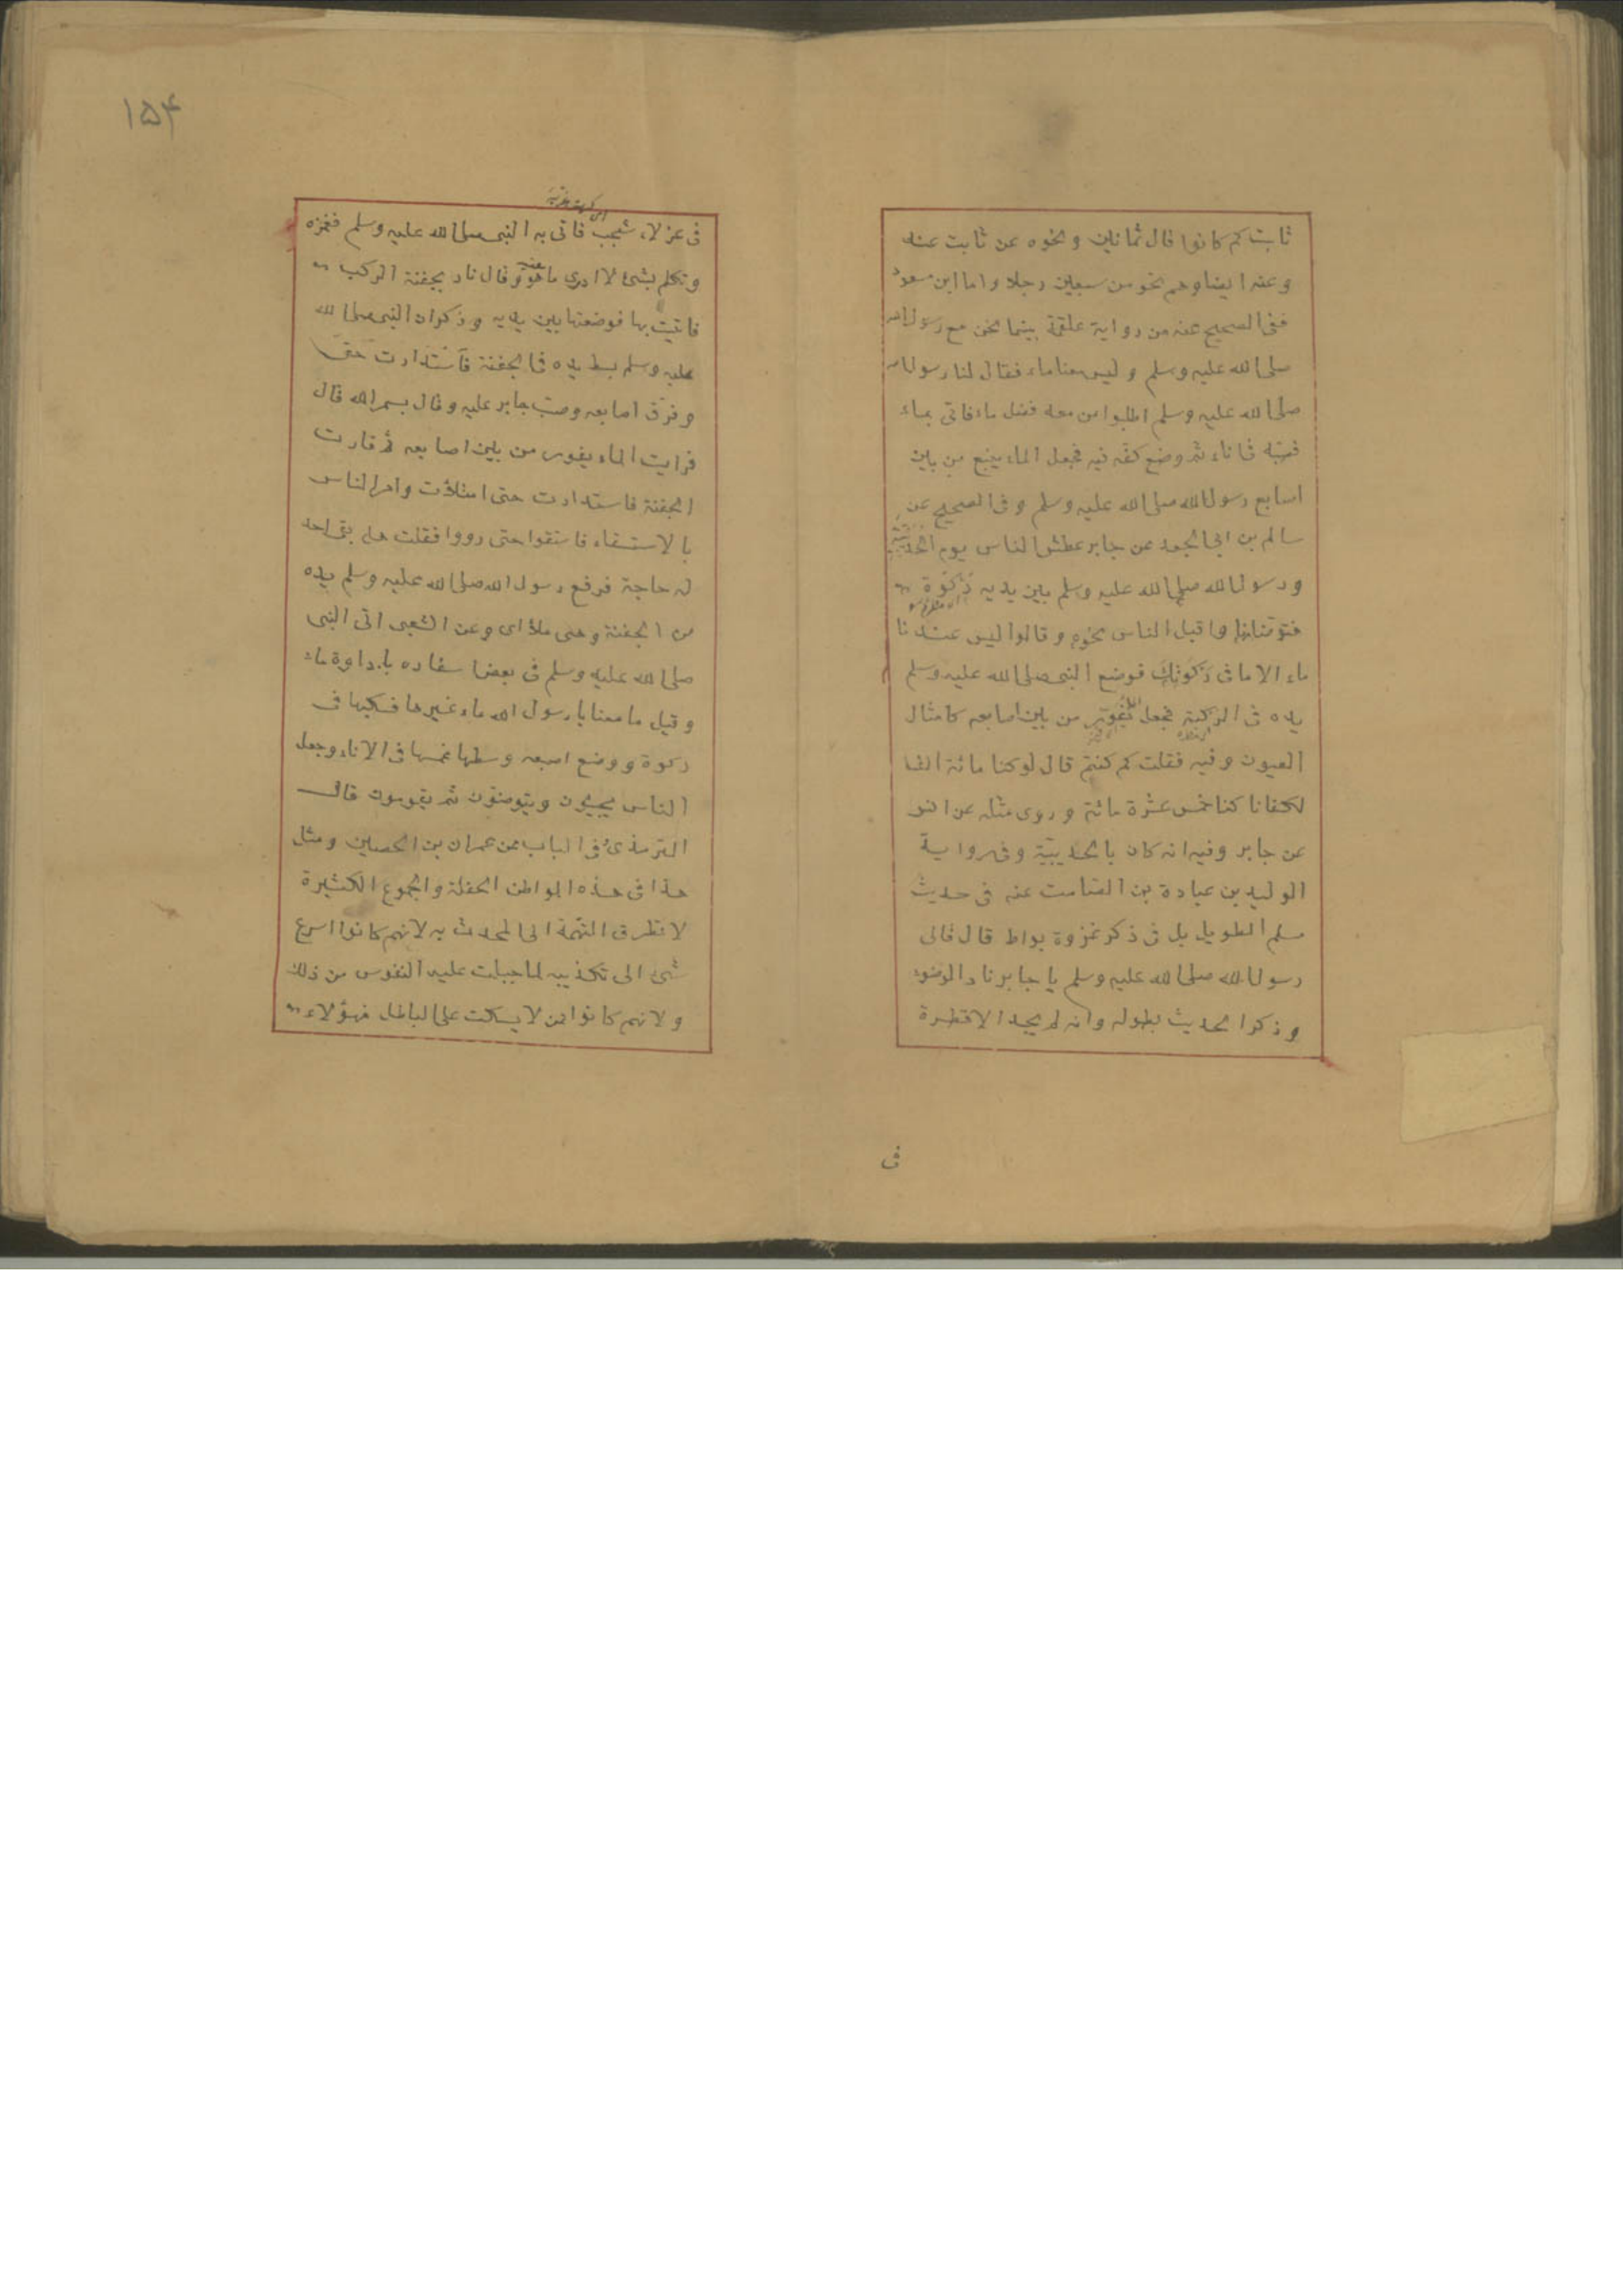 ثابت كم كانوا قال ثمانين ونحوه عن ثابت عنه
وعنه ايضا وهم نحو من سبعين رجلا واما ابن مسعود
ففى الصحيح عنه من رواية علقمة بينما نحن مع رسول الله
صلى الله عليه وسلم وليس معنا ماء فقال لنا رسول الله
صلى الله عليه وسلم اطلبوا من معه فضل ماء فاتى بماء
فصبّه فى اناء ثم وضع كفّه فيه فجعل الماء ينبع من بين
اصابع رسول الله صلى الله عليه وسلم وفى الصحيح عن
سالم بن ابى الجعد عن جابر عطش الناس يوم الحديبية
ورسول الله صلى الله عليه وسلم بين يديه رَكْوَة
فتوضأ منها واقبل الناس نحوه وقالوا ليس عندنا
ماء الا ما فى رَكْوَتِكَ فوضع النبى صلى الله عليه وسلم
يده فى الركوة فجعل الماء يفور من بين اصابعه كامثال
العيون وفيه فقلت كم كنتم قال لو كنا مائة الف
لكفانا كنا خمس عشرة مائة وروى مثله عن انس
عن جابر وفيه انه كان بالحديبيّة وفى رواية
الوليد بن عبادة بن الصّامت عنه فى حديث
مسلم الطويل بل فى ذكر غزوة بواط قال قال لى
رسول الله صلى الله عليه وسلم يا جابر ناد الوضوء
وذكر الحديث بطوله وانه لم يجد الا قطرة
فى
١٥۴
فى عزلاء شجب فاتى به النبى صلى الله عليه وسلم فغمزه
وتكلم بشئ لا ادرى ما هو وقال ناد بجفنة الركب
فاتيت بها فوضعتها بين يديه وذكر ان النبى صلى الله
عليه وسلم بسط يده فى الجفنة فاستدارت حتى
وفرّق اصابعه وصبّ جابر عليه وقال بسم الله قال
فرايت الماء يفور من بين اصابعه ثم فارت
الجفنة فاستدارت حتى امتلأت وامر الناس
بالاستسقاء فاستقوا حتى رووا فقلت هل بقى احد
له حاجة فرفع رسول الله صلى الله عليه وسلم يده
من الجفنة وهى ملأى وعن الشعبى اتى النبى
صلى الله عليه وسلم فى بعض اسفاره باداوة ماء
وقيل ما معنا يا رسول الله ماء غيرها فسكبها فى
ركوة ووضع اصبعه وسطها غمسها فى الاناء وجعل
الناس يجيئون ويتوضئون ثم يقومون قال
الترمذىّ وفى الباب عن عمران بن الحصين ومثل
هذا فى هذه المواطن الحفلة والجموع الكثيرة
لا تطرق التهمة الى المحدث به لانهم كانوا اسرع
شئ الى تكذيبه لما جبلت عليه النفوس من ذلك
ولانهم كانوا ممن لا يسكت على الباطل فهؤلاء